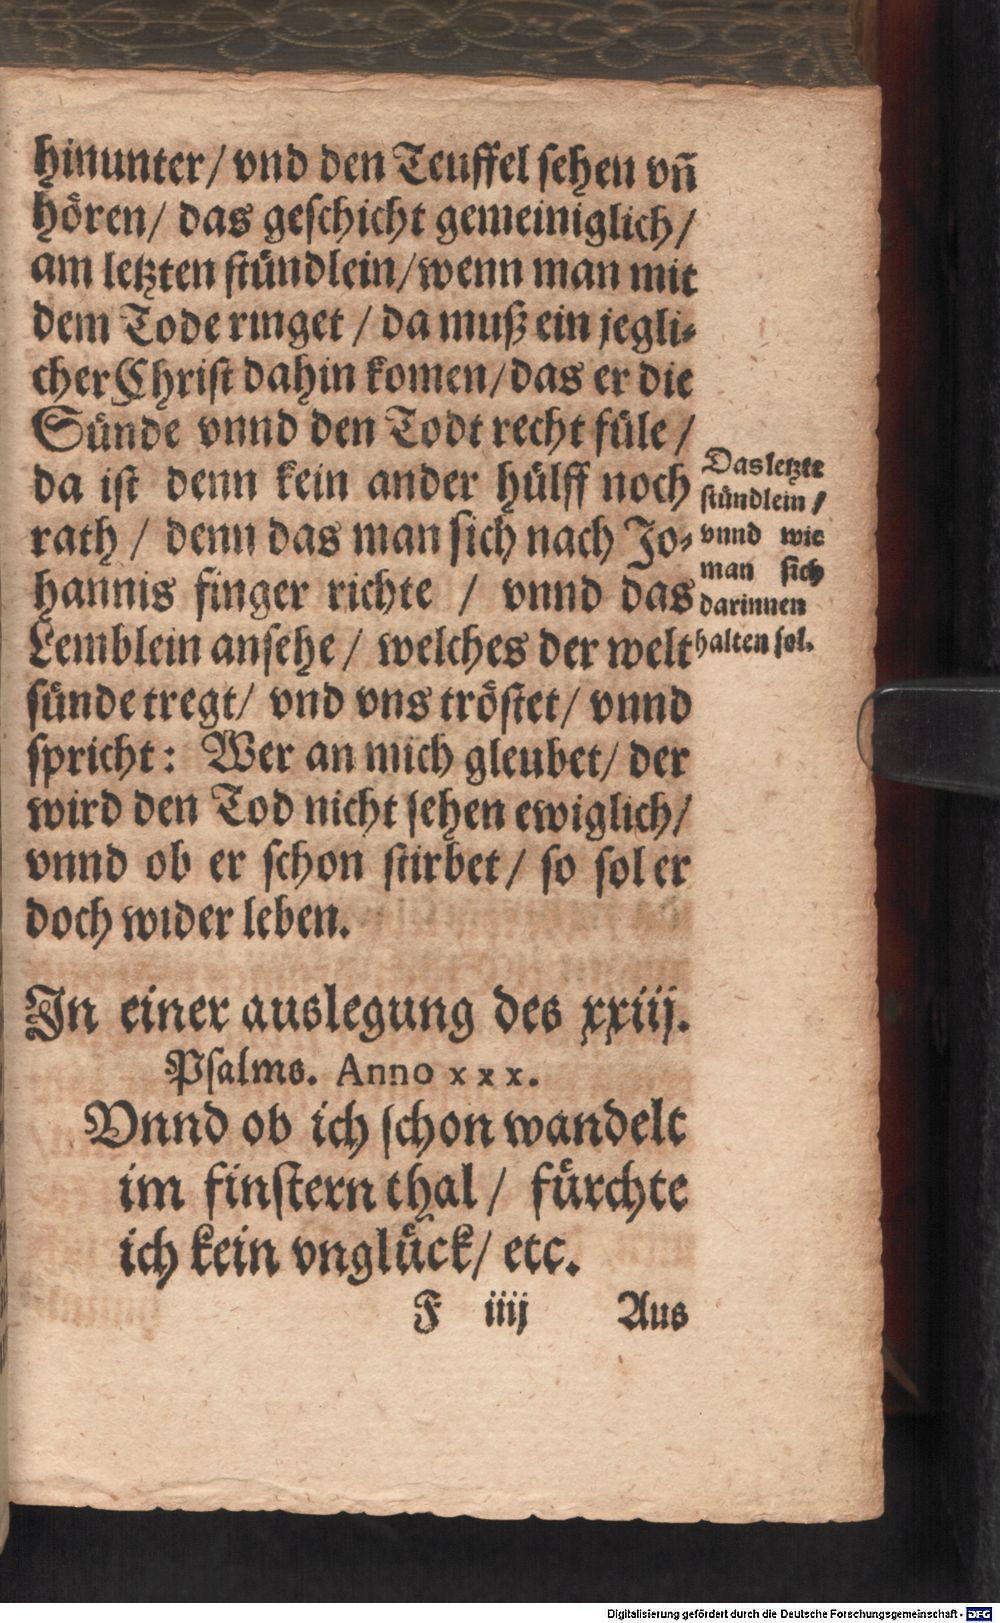 hinunter/ vnd den Teuffel sehen vn̄
hören/ das geschicht gemeiniglich/
am letzten stündlein/wenn man mit
dem Tode ringet / da muß ein jegli⸗
cher Christ dahin komen/das er die
Sünde vnnd den Todt recht füle /
da ist denn kein ander hülff noch
rath / denn das man sich nach Jo⸗
hannis finger richte / vnnd das
Lemblein ansehe/ welches der welt
sünde tregt/ vnd vns tröstet/ vnnd
spricht: Wer an mich gleubet/ der
wird den Tod nicht sehen ewiglich/
vnnd ob er schon stirbet/ so sol er
doch wider leben.
Das letzte
stündlein /
vnnd wie
man sich
darinnen
halten sol.
In einer auslegung des xxiij.
Psalms. Anno x x x.
Vnnd ob ich schon wandelt
im finstern thal/ fürchte
ich kein vnglück/ etc.
F iiij Aus
Digitalisierung gefördert durch die Deutsche Forschungsgemeinschaft - DFG